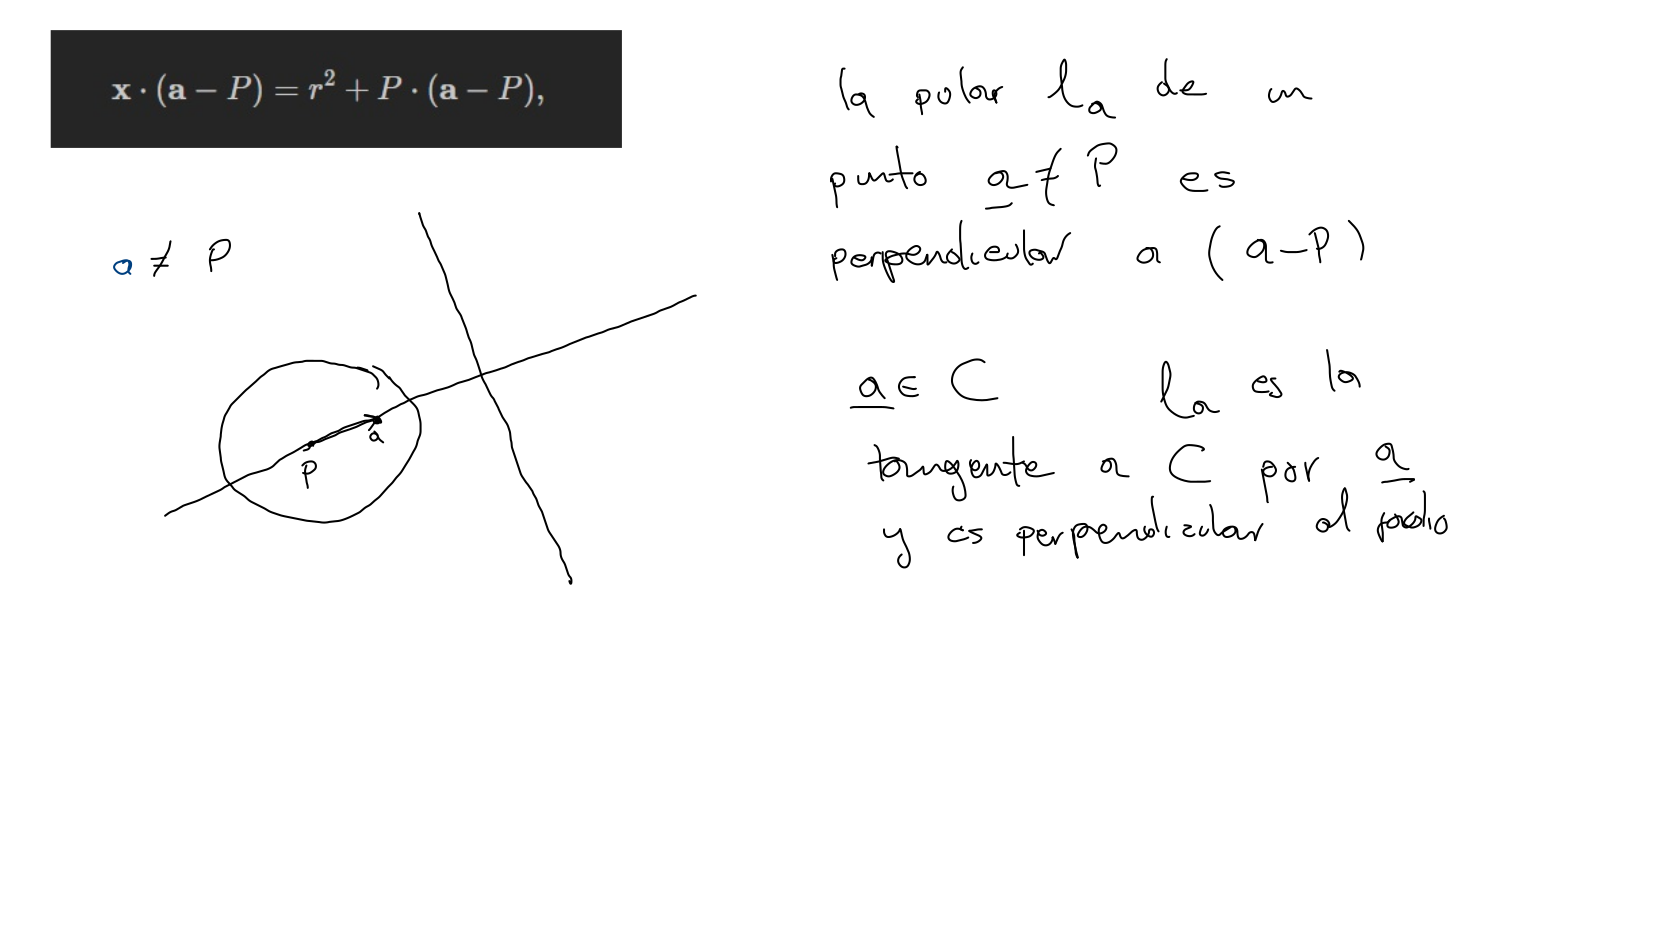 x · (a − P) = r² + P · (a − P),
a ≠ P
P
a
la polar lₐ de un
punto a ≠ P es
perpendicular a (a-P)
a ∈ C lₐ es la
tangente a C por a
y es perpendicular al radio